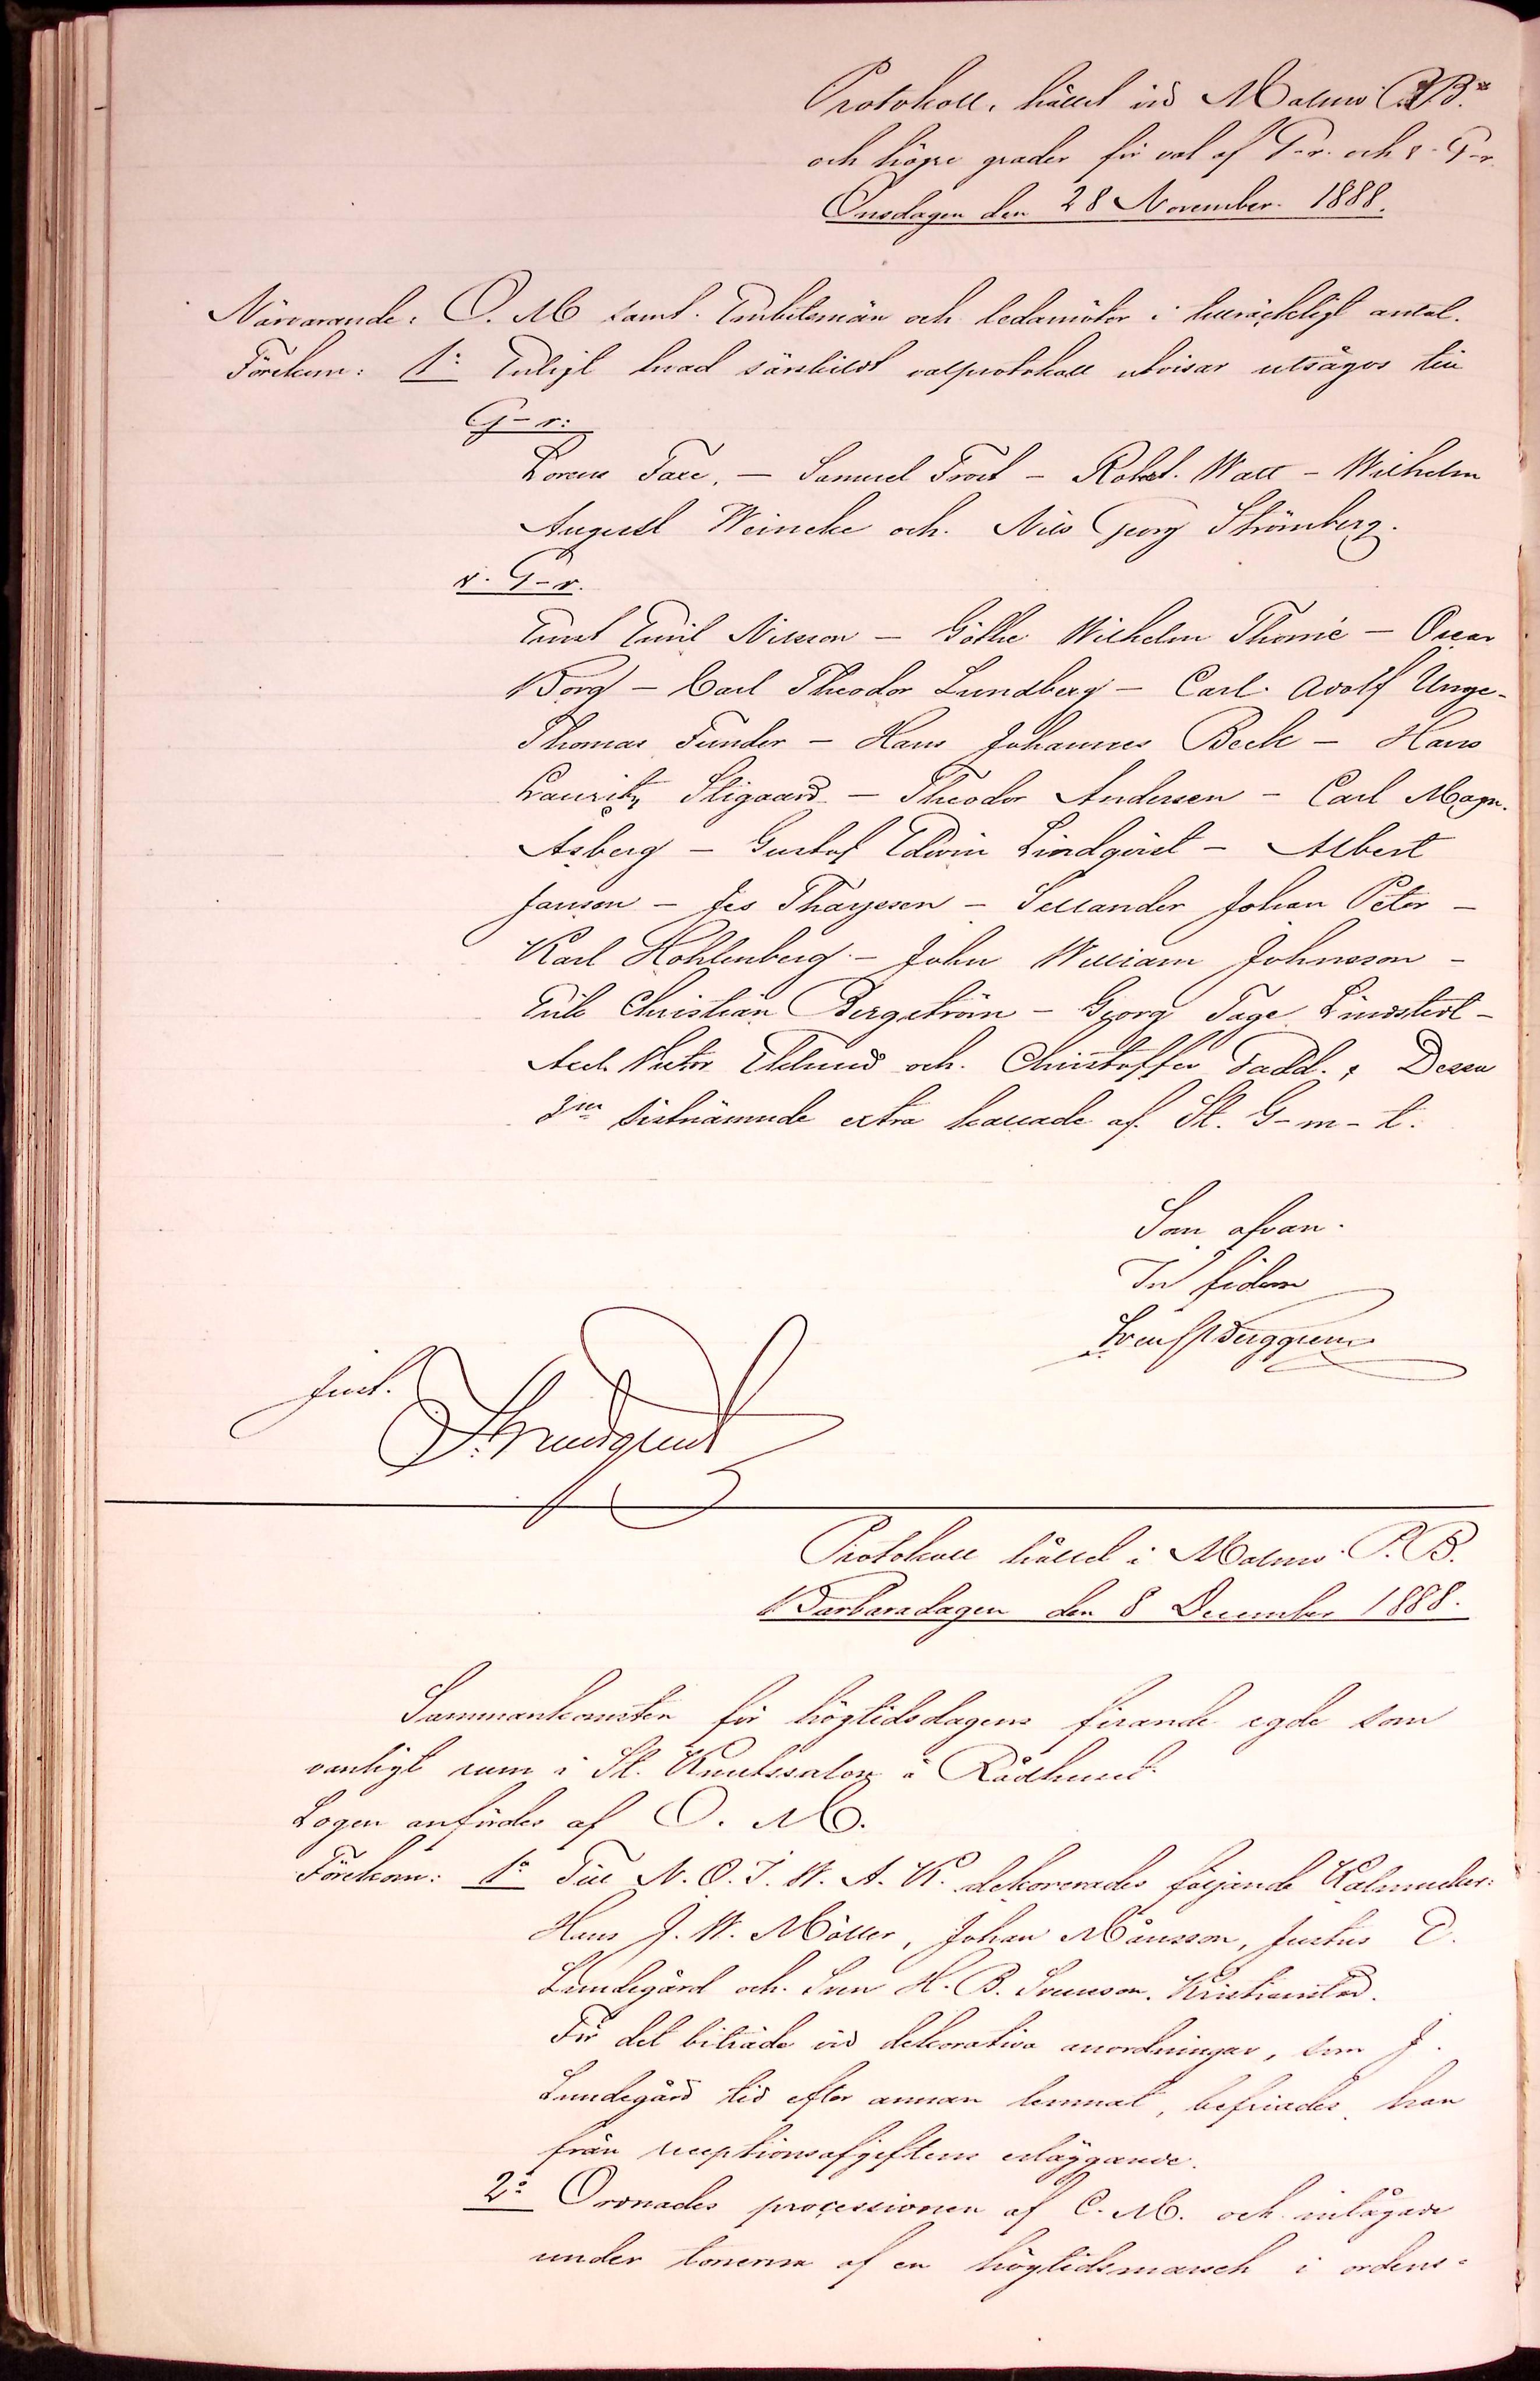 Protokoll, hållet vid Malmö P.B.
och högre grader för val af G-r. och r. G-r.
Onsdagen den 28 November 1888.
Närvarande: O. M samt Embetsmän och ledamöter i tillräckligt antal.
Förekom: 1º Enligt hvad särskildt valprotokoll utvisar utsågos till
G-r:
Lorens Faxe, – Samuel Frost – Robt. Watt – Wilhelm
August Weincke och Nils Georg Strömberg.
r. G-r.
Ernst Emil Nilsson – Göthe Wilhelm Thomé – Oscar
Borg – Carl Theodor Lundberg – Carl Adolf Unge –
Thomas Funder – Hans Johannes Beck – Hans
Lauritz Stigaard – Theodor Andersen – Carl Magn.
Asberg – Gustaf Edwin Lindqvist – Albert
Janson – Jes Thaysen – Sellander Johan Peter –
Karl Hohlenberg – John William Johnsson –
Christian Bergström – Georg Tage Lindstedt –
Axel Victor Eklund och Christoffer Fadd. Dessa
sistnämnde extra kallade af St. G-m-t.
Som ofvan.
In fidem
Sven Berggren
Just.
Protokoll hållet i Malmö P.B.
Barbaradagen den 8 December 1888.
Sammankomsten för högtidsdagens firande egde som
vanligt rum i St. Knutssalon å Rådhuset.
Logen anfördes af O. M.
Förekom: 1º Till N. O. J. W. A. K. dekorerades följande Kalmucker:
Hans J. W. Möller, Johan Månsson, Justus E.
Lundegård och Sven H. B. Svensson, Kristianstad.
För det biträde vid dekorativa anordningar, som J.
Lundegård tid efter annan lemnat, befriades han
från receptionsafgiftens erläggande.
2º Ordnades processionen af C. M. och intågade
under tonerna af en högtidsmarsch i ordens-